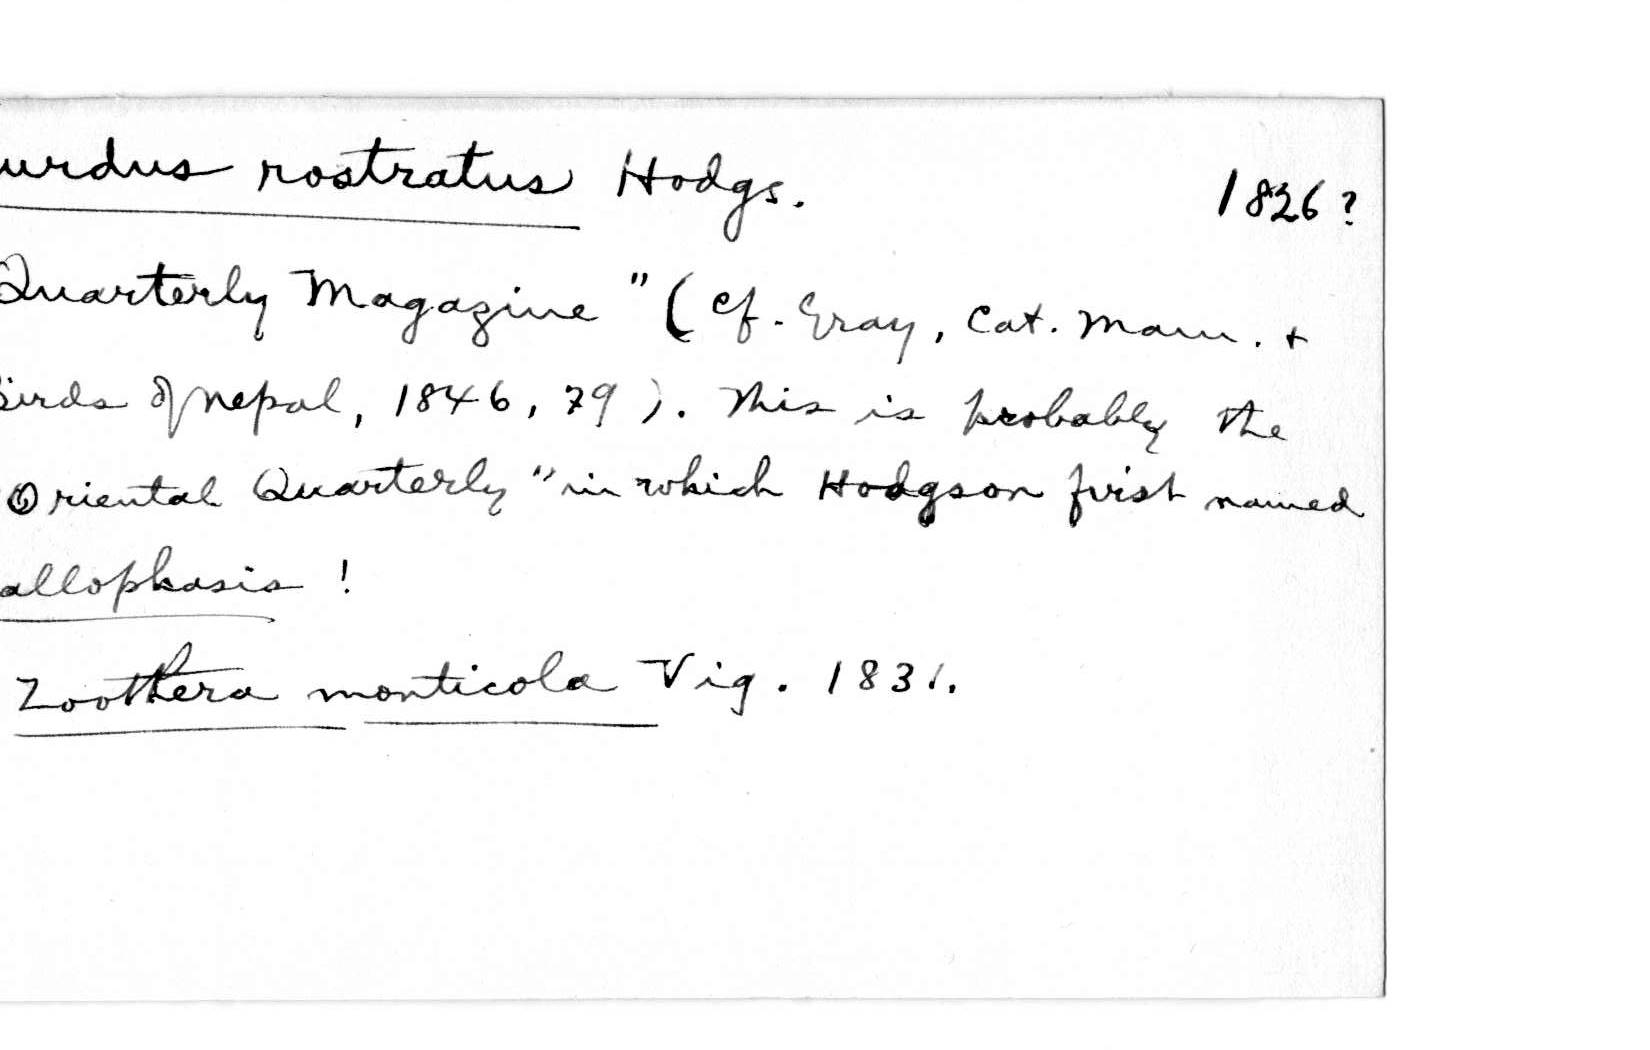 urdus rostratus Hodgs. 1826?
Quarterly Magazine" (Cf. Gray, Cat. Mam. +
Birds of Nepal, 1846, 79). This is probably the
Oriental Quarterly" in which Hodgson first named
allophasis!
Zoothera monticola Vig. 1831.